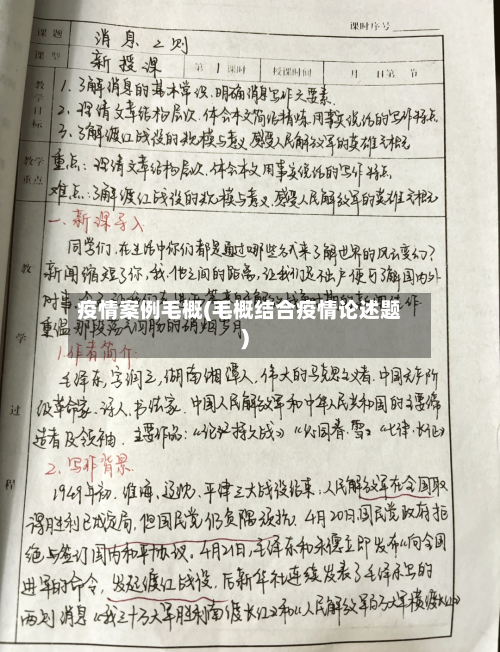 课时序号
课题 消息二则
课型 新授课 第1课时 授课时间 月 日第 节
教学目标
1. 了解消息的基本常识,明确消息写作六要素.
2. 理清文章结构层次,体会本文简洁精炼,用事实说话的写作特点.
3. 了解渡江战役的规模与意义,感受人民解放军的英雄气概
教学重点
重点:理清文章结构层次,体会本文用事实说话的写作特点.
难点:了解渡江战役的规模与意义,感受人民解放军的英雄气概
一、新课导入
同学们,在生活中你们都是通过哪些方式来了解世界的风云变幻?
新闻缩短了你、我、他之间的距离,让我们足不出户便可了解国内外
时事
疫情案例毛概(毛概结合疫情论述题
)
重温那段荡气回肠的硝烟岁月
教学过程
1.作者简介:
毛泽东,字润之,湖南湘潭人,伟大的马克思主义者,中国无产阶
级革命家、诗人、书法家,中国人民解放军和中华人民共和国的主要缔
造者及领袖.主要作品:《论持久战》《沁园春·雪》《七律·长征》
2.写作背景
1949年初,淮海、辽沈、平津三大战役结束,人民解放军在全国取
得胜利已成定局,但国民党仍负隅顽抗.4月20日,国民党政府拒
绝与签订国内和平协议.4月21日,毛泽东和朱德立即发布《向全国
进军的命令》,发起渡江战役.后新华社连续发表了毛泽东写的
两则消息《我三十万大军胜利南渡长江》和《人民解放军百万大军横渡长江》